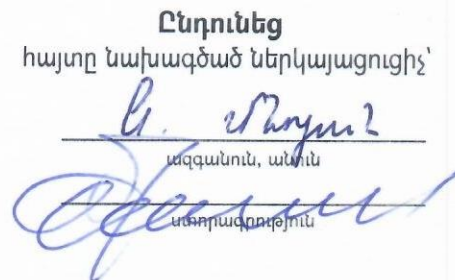 Ընդունեց
հայտը նախագծած ներկայացուցիչ՝
ազգանուն, անուն
ստորագրություն